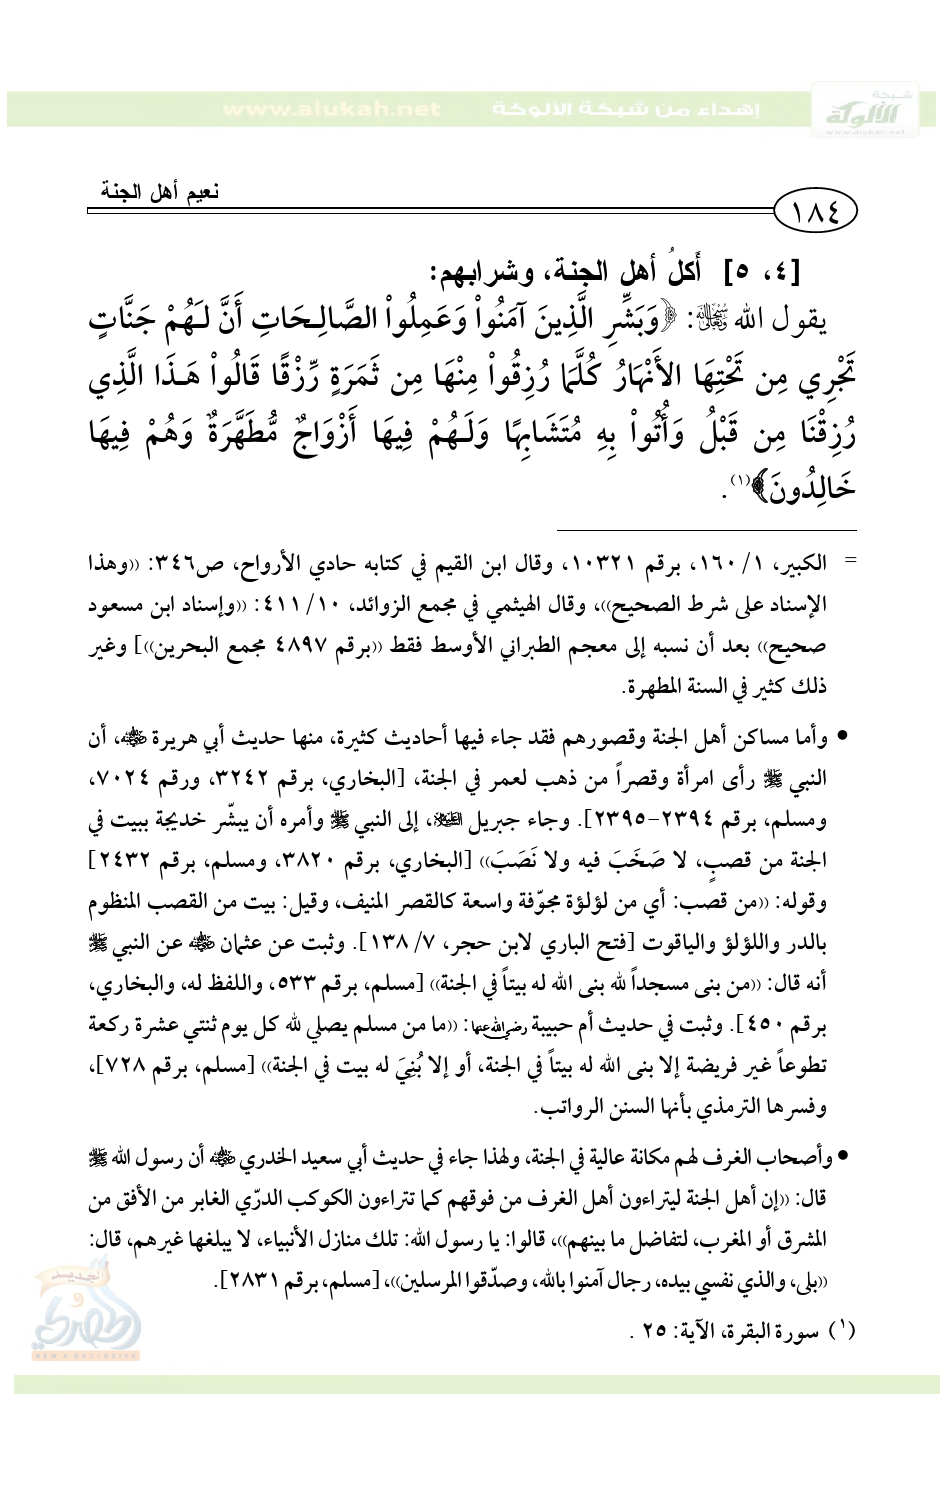 شبكة
الألوكة
www.alukah.net
إهداء من شبكة الألوكة www.alukah.net
١٨٤ نعيم أهل الجنة
[٤، ٥] أَكلُ أهل الجنة، وشرابهم:
يقول الله ﷾: ﴿وَبَشِّرِ الَّذِينَ آمَنُواْ وَعَمِلُواْ الصَّالِحَاتِ أَنَّ لَهُمْ جَنَّاتٍ
تَجْرِي مِن تَحْتِهَا الأَنْهَارُ كُلَّمَا رُزِقُواْ مِنْهَا مِن ثَمَرَةٍ رِّزْقًا قَالُواْ هَـذَا الَّذِي
رُزِقْنَا مِن قَبْلُ وَأُتُواْ بِهِ مُتَشَابِهًا وَلَهُمْ فِيهَا أَزْوَاجٌ مُّطَهَّرَةٌ وَهُمْ فِيهَا
خَالِدُونَ﴾(١).
= الكبير، ١/ ١٦٠، برقم ١٠٣٢١، وقال ابن القيم في كتابه حادي الأرواح، ص٣٤٦: ((وهذا
الإسناد على شرط الصحيح))، وقال الهيثمي في مجمع الزوائد، ١٠/ ٤١١: ((وإسناد ابن مسعود
صحيح)) بعد أن نسبه إلى معجم الطبراني الأوسط فقط ((برقم ٤٨٩٧ مجمع البحرين))] وغير
ذلك كثير في السنة المطهرة.
• وأما مساكن أهل الجنة وقصورهم فقد جاء فيها أحاديث كثيرة، منها حديث أبي هريرة ﵁، أن
النبي ﷺ رأى امرأة وقصراً من ذهب لعمر في الجنة، [البخاري، برقم ٣٢٤٢، ورقم ٧٠٢٤،
ومسلم، برقم ٢٣٩٤-٢٣٩٥]. وجاء جبريل ﵇، إلى النبي ﷺ وأمره أن يبشّر خديجة ببيت في
الجنة من قصبٍ، لا صَخَبَ فيه ولا نَصَبَ)) [البخاري، برقم ٣٨٢٠، ومسلم، برقم ٢٤٣٢]
وقوله: ((من قصب: أي من لؤلؤة مجوّفة واسعة كالقصر المنيف، وقيل: بيت من القصب المنظوم
بالدر واللؤلؤ والياقوت [فتح الباري لابن حجر، ٧/ ١٣٨]. وثبت عن عثمان ﵁ عن النبي ﷺ
أنه قال: ((من بنى مسجداً لله بنى الله له بيتاً في الجنة)) [مسلم، برقم ٥٣٣، واللفظ له، والبخاري،
برقم ٤٥٠]. وثبت في حديث أم حبيبة رضي الله عنها: ((ما من مسلم يصلي لله كل يوم ثنتي عشرة ركعة
تطوعاً غير فريضة إلا بنى الله له بيتاً في الجنة، أو إلا بُنِيَ له بيت في الجنة)) [مسلم، برقم ٧٢٨]،
وفسرها الترمذي بأنها السنن الرواتب.
• وأصحاب الغرف لهم مكانة عالية في الجنة، ولهذا جاء في حديث أبي سعيد الخدري ﵁ أن رسول الله ﷺ
قال: ((إن أهل الجنة ليتراءون أهل الغرف من فوقهم كما تتراءون الكوكب الدرّي الغابر من الأفق من
المشرق أو المغرب، لتفاضل ما بينهم))، قالوا: يا رسول الله: تلك منازل الأنبياء، لا يبلغها غيرهم، قال:
((بلى، والذي نفسي بيده، رجال آمنوا بالله، وصدّقوا المرسلين))، [مسلم، برقم ٢٨٣١].
(١) سورة البقرة، الآية: ٢٥ .
الجديد
و
الحصري
NEW & EXCLUSIVE